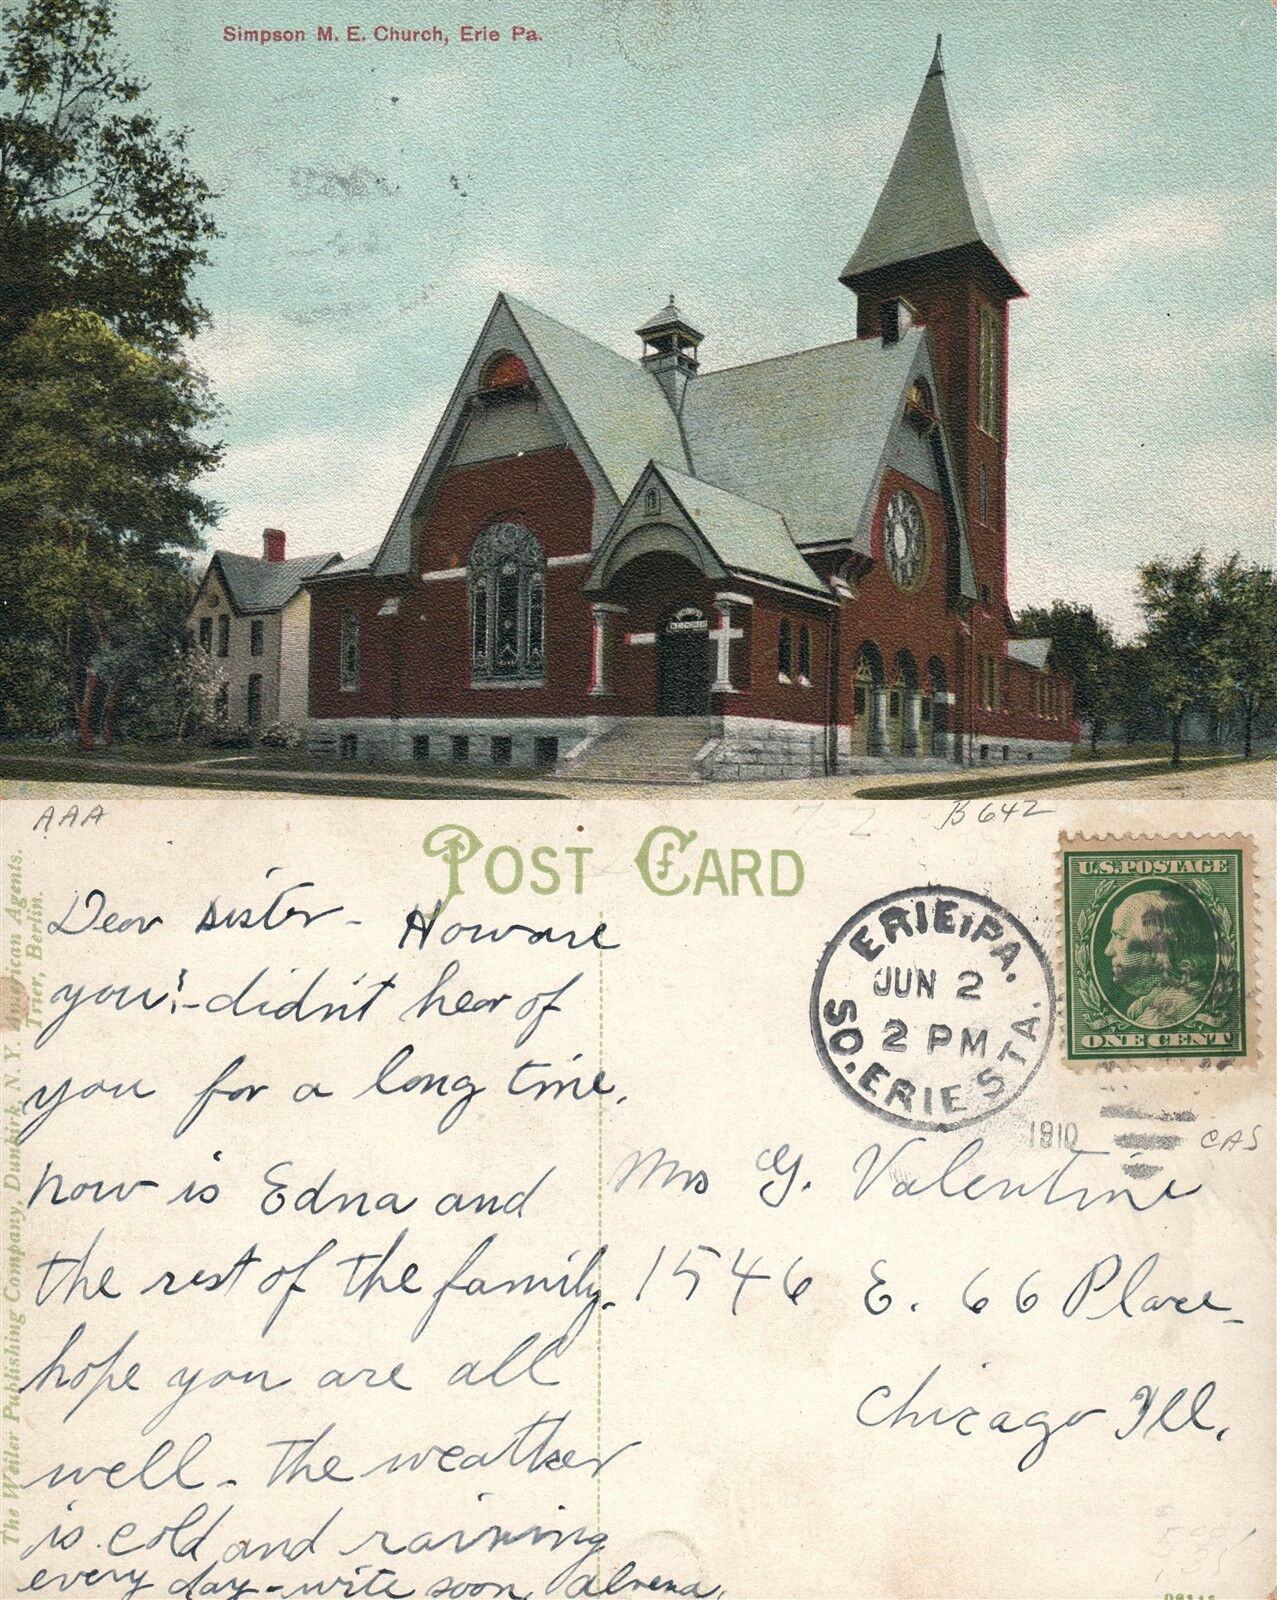 Simpson M. E. Church, Erie Pa.
AAA
B 642
POST CARD
The Weiler Publishing Company, Dunkirk, N. Y. American Agents.
Trier, Berlin.
U.S. POSTAGE
ONE CENT
ERIE, PA.
JUN 2
2 PM
SO. ERIE STA.
1910
CAS
Dear sister - How are
you? - didn't hear of
you for a long time.
how is Edna and
the rest of the family.
hope you are all
well - the weather
is cold and raining
every day - write soon, alvena.
Mrs G. Valentine
1546 E. 66 Place
Chicago Ill.